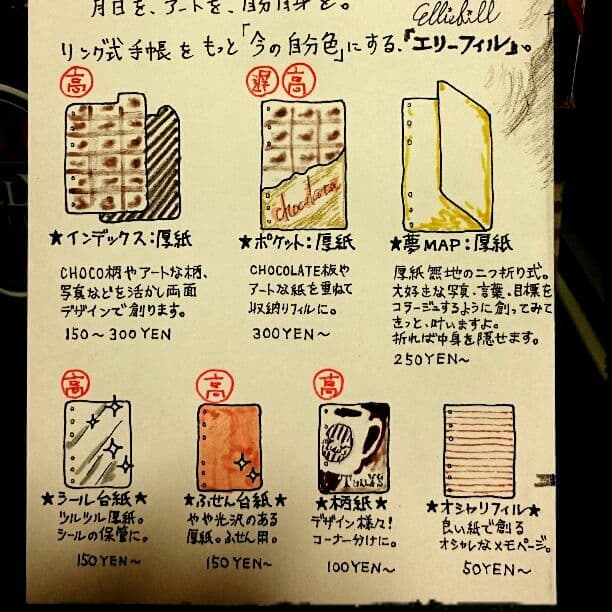 月日を、アートを、自分自身を。
Elliefill
リング式手帳をもっと「今の自分色」にする、『エリーフィル』。
高
遅 高
chocolate
★インデックス:厚紙
CHOCO柄やアートな柄、
写真などを活かし両面
デザインで創ります。
150〜300YEN
★ポケット:厚紙
CHOCOLATE板や
アートな紙を重ねて
収納リフィルに。
300YEN〜
★夢MAP:厚紙
厚紙無地の二つ折り式。
大好きな写真、言葉、目標を
コラージュするように創ってみて
きっと、叶いますよ。
折れば中身を隠せます。
250YEN〜
高
高
高
TULLY'S
★シール台紙★
ツルツル厚紙。
シールの保管に。
150YEN〜
★ふせん台紙★
やや光沢のある
厚紙。ふせん用。
150YEN〜
★柄紙★
デザイン様々!
コーナー分けに。
100YEN〜
★オシャリフィル★
良い紙で創る
オシャレなメモページ。
50YEN〜